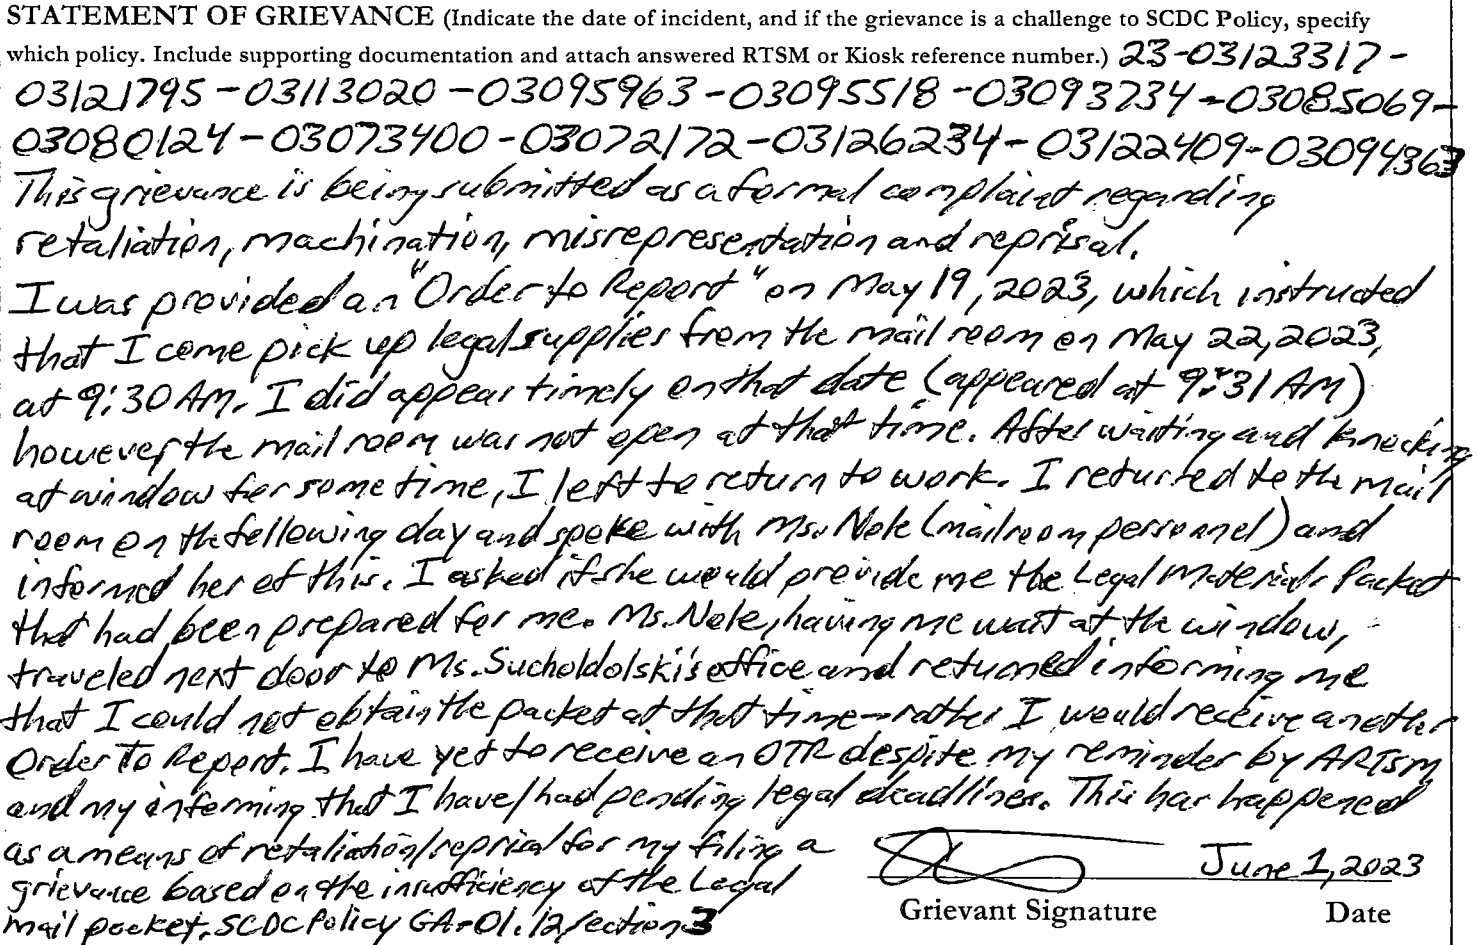 STATEMENT OF GRIEVANCE (Indicate the date of incident, and if the grievance is a challenge to SCDC Policy, specify
which policy. Include supporting documentation and attach answered RTSM or Kiosk reference number.) 23-03123317-
03121795-03113020-03095963-03095518-03093734-03085069-
03080124-03073400-03072172-03126234-03122409-03094363
This grievance is being submitted as a formal complaint regarding
retaliation, machination, misrepresentation and reprisal.
I was provided an "Order to Report" on May 19, 2023, which instructed
that I come pick up legal supplies from the mail room on May 22, 2023,
at 9:30 AM. I did appear timely on that date (appeared at 9:31 AM)
however the mail room was not open at that time. After waiting and knocking
at window for some time, I left to return to work. I returned to the mail
room on the following day and spoke with Ms. Nole (mailroom personnel) and
informed her of this. I asked if she would provide me the Legal Materials Packet
that had been prepared for me. Ms. Nole, having me wait at the window,
traveled next door to Ms. Sucholdolski's office and returned informing me
that I could not obtain the packet at that time-rather I would receive another
Order To Report. I have yet to receive an OTR despite my reminder by ARTSM
and my informing that I have/had pending legal deadlines. This has happened
as a means of retaliation/reprisal for my filing a
grievance based on the insufficiency of the Legal
mail packet. SCDC Policy GA-01.12, section 3
June 1, 2023
Grievant Signature Date